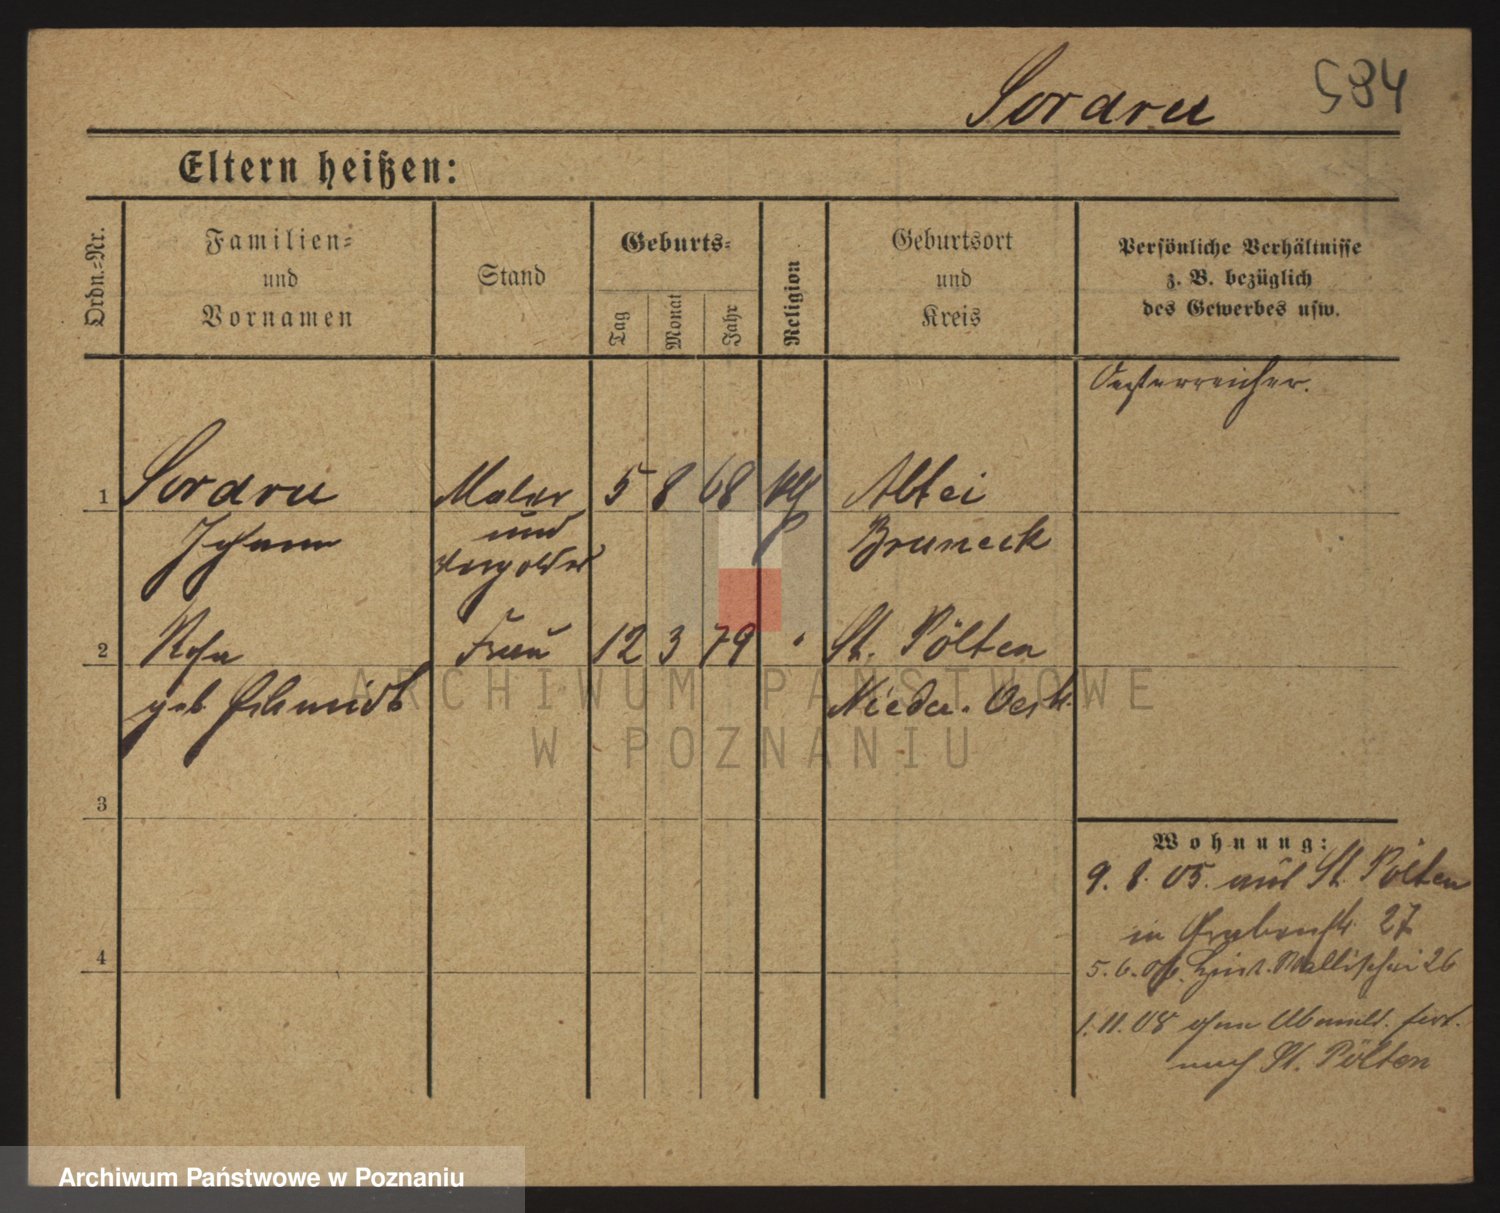 Sordru 584
Eltern heißen:
Ordn.-Nr.
Familien-
und
Vornamen
Stand
Geburts-
Tag
Monat
Jahr
Religion
Geburtsort
und
Kreis
Persönliche Verhältnisse
z. B. bezüglich
des Gewerbes usw.
Oesterreicher.
1 Sordru Maler 5 8 68 Abtei
Johann und Bruneck
Vergolder
2 Rosa Frau 12 3 79 " St. Pölten
geb Schmidt Nieder. Oestr.
3
4
Wohnung:
9. 8. 05. aus St. Pölten
in Grabenstr. 27
5. 6. 06. Wallischei 26
1. 11. 08 ohne Abmeld. fort.
nach St. Pölten
ARCHIWUM PAŃSTWOWE
W POZNANIU
Archiwum Państwowe w Poznaniu